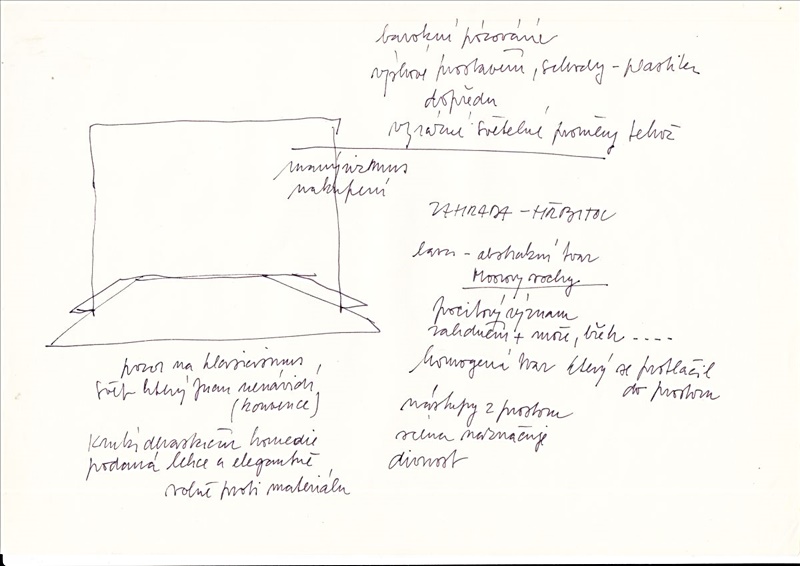 barokní pózování
výškové prostavění, schody - plastika
dopředu
výrazné světelné proměny téhož
manýrizmus
nakupení
ZAHRADA - HŘBITOV
lava - abstraktní tvar
Moorovy sochy
pocitový význam
zahdnění + moře, břeh ....
homogená tvar který se protlačil
do prostoru
nástupy z prostoru
scéna naznačuje
divnost
pozor na klasicismus,
svět který Juan nenávidí,
(konvence)
komedie
podaná lehce a elegantně,
volně proti materiálu